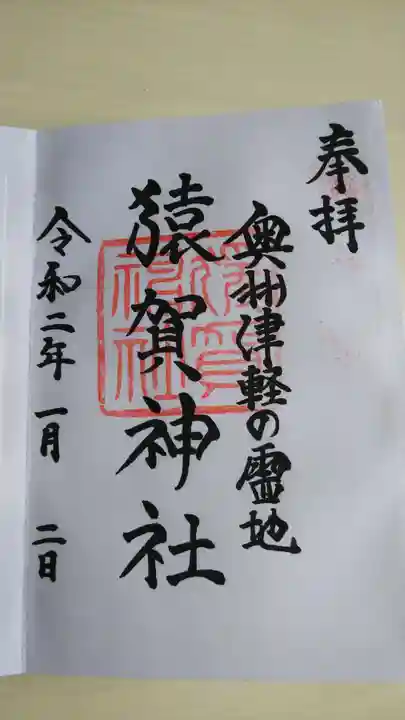 奉拝
奥州津軽の霊地
猿賀神社
猿賀神社
令和二年 一月 二日